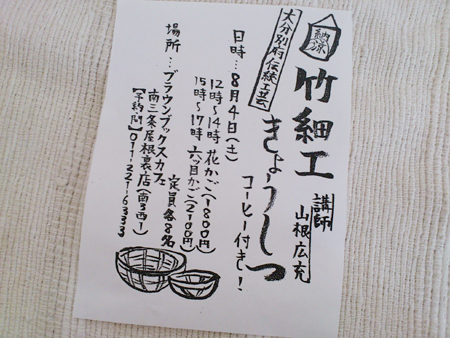 納涼
竹細工
講師
山根広充
大分別府伝統工芸
きょうしつ
コーヒー付き!
日時…8月4日(土)
12時〜14時 花かご(1800円)
15時〜17時 六ツ目かご(2100円)
定員各8名
場所…ブラウンブックスカフェ
南三条屋根裏店(南3西1)
【予約問】011-221-6333